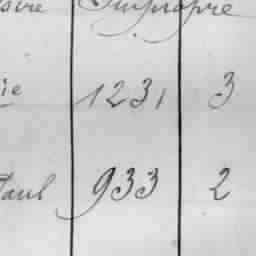 Impropre
ie 1231 3
Paul 933 2